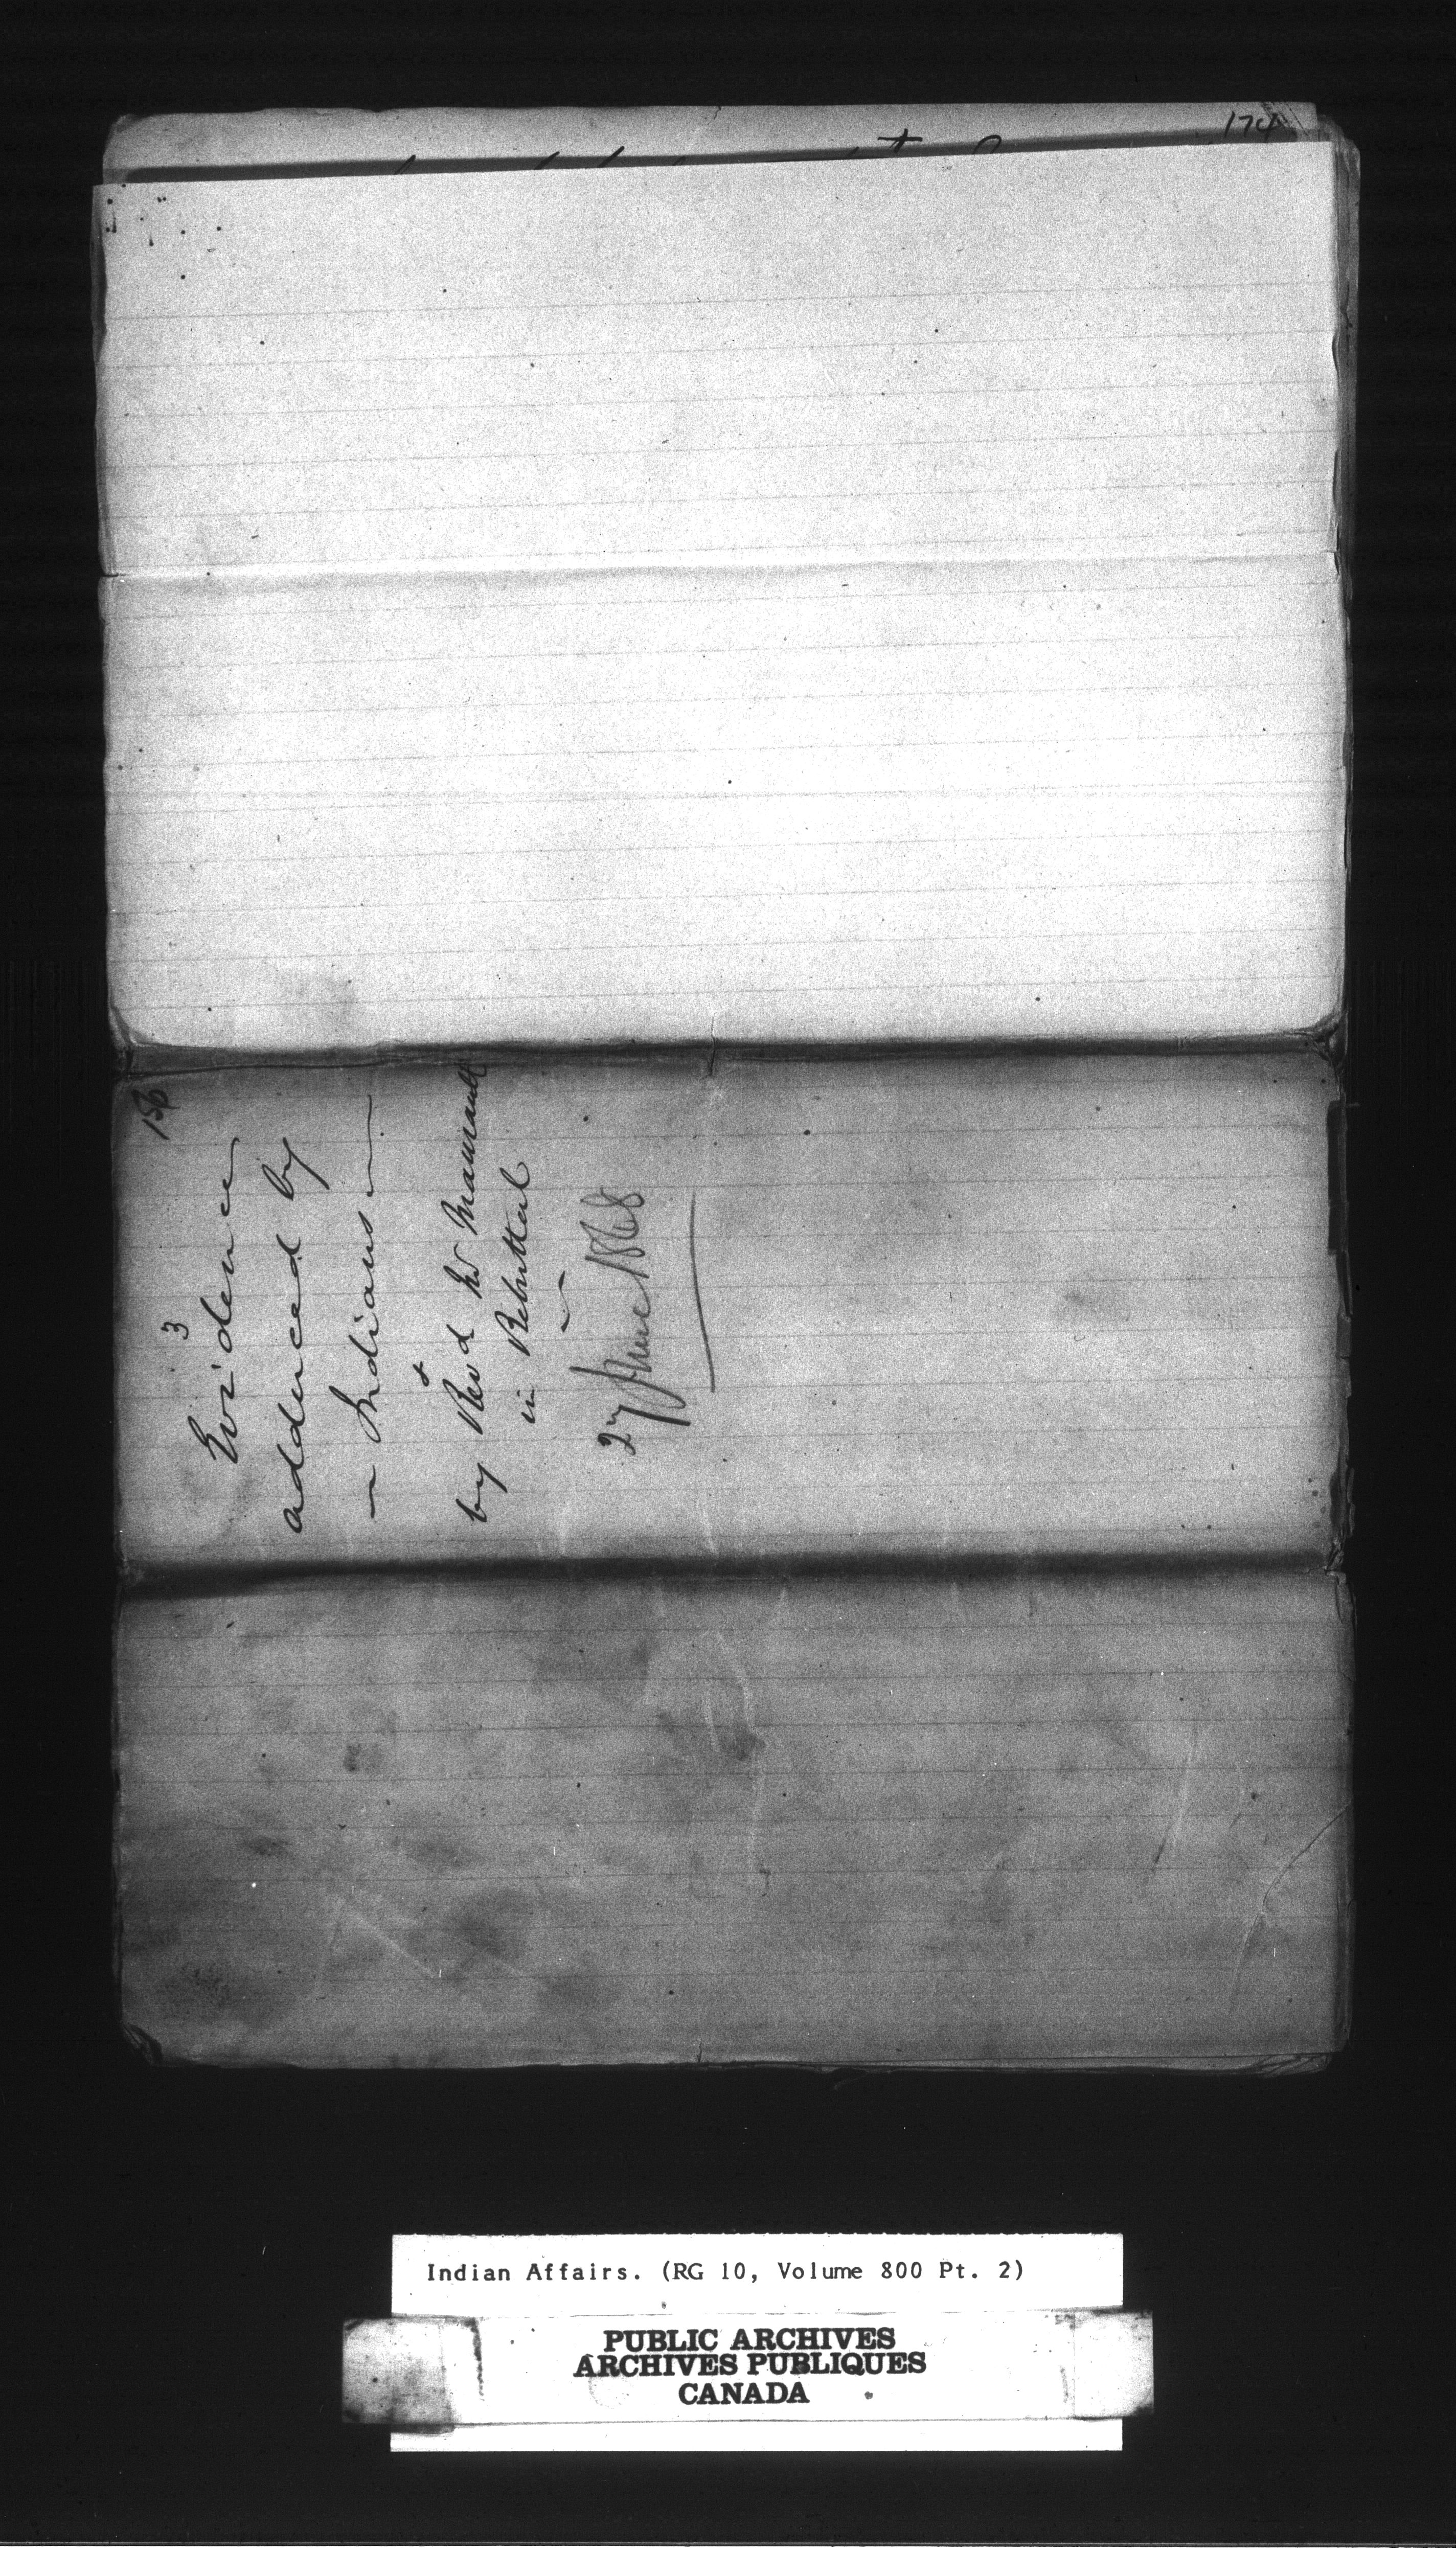 174
156
3
Evidence
adduced by
— Indians —
&
by Revd Mr Maurault
in Rebuttal
27 June 1868
Indian Affairs. (RG 10, Volume 800 Pt. 2)
PUBLIC ARCHIVES
ARCHIVES PUBLIQUES
CANADA